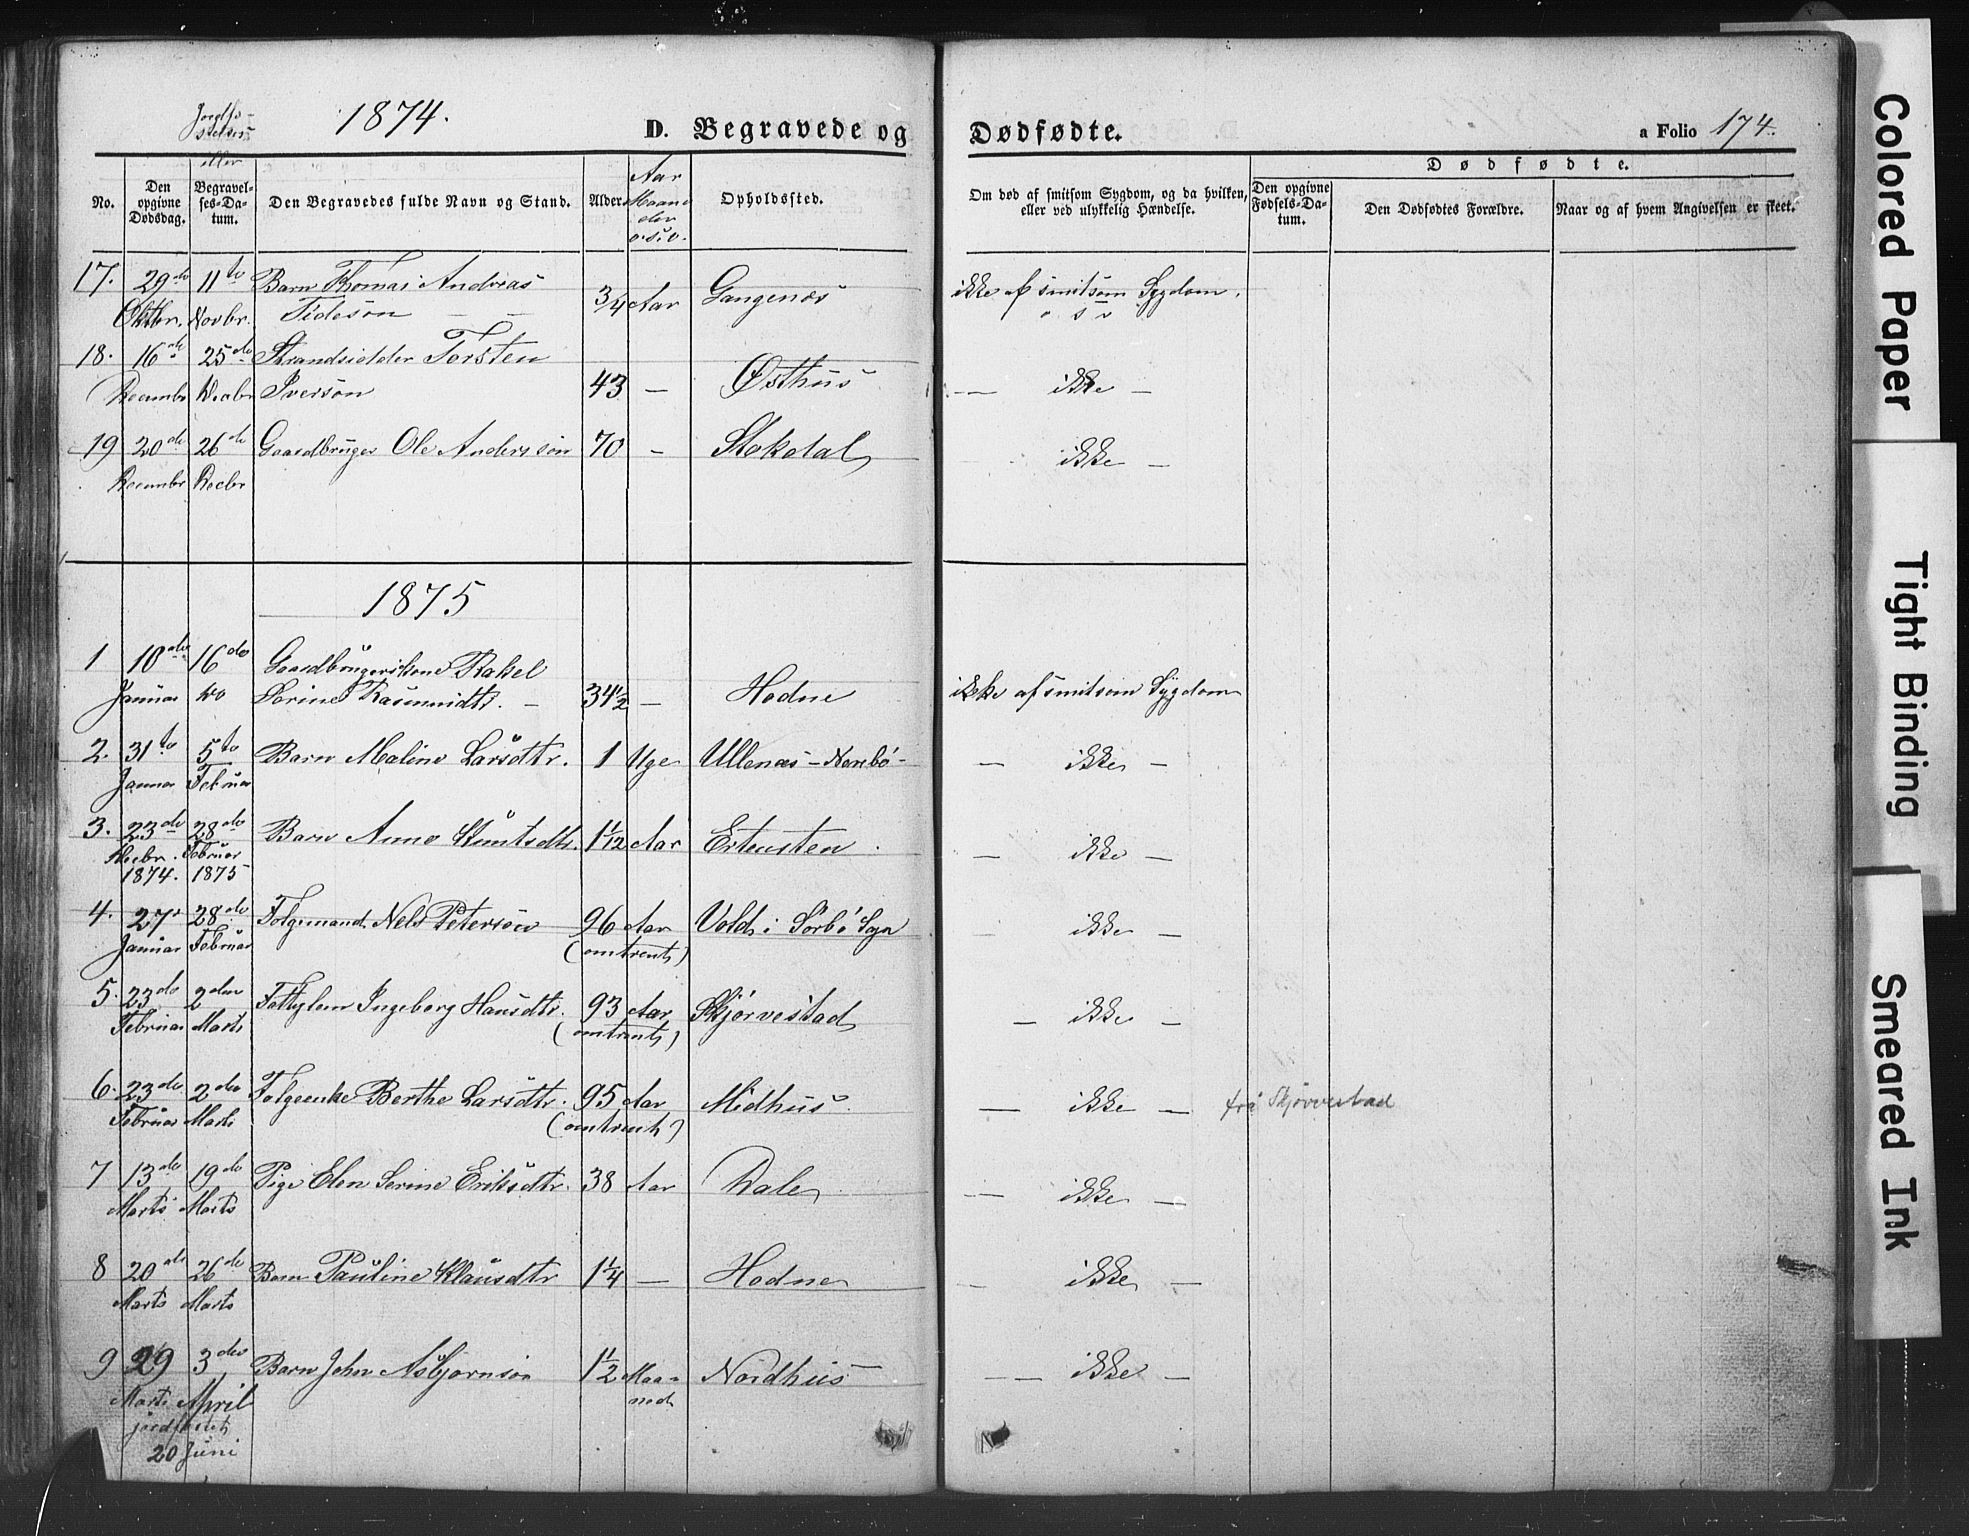 1874.
D. Begravede og Dødfødte.
a Folio 174.
Jordfæ-
stelses
eller
No.
Den opgivne Dødsdag.
Begravel-ses-Da-tum.
Den Begravedes fulde Navn og Stand.
Alder.
Aar
Maane
der
o.s.v.
Opholdssted.
Om død af smitsom Sygdom, og da hvilken, eller ved ulykkelig Hændelse.
Dødfødte.
Den opgivne Fødsels-Da-tum.
Den Dødfødtes Forældre.
Naar og af hvem Angivelsen er skeet.
17. 29de 11te Barn Thomas Andreas
Oktbr. Novbr. Tidesøn 3/4 Aar Gangenæs ikke af smitsom Sygdom.
o s v
18. 16de 25de Strandsidder Torsten
Decembr Decbr Iversøn 43 — Østhus — ikke —
19 20de 26de Gaardbruger Ole Anderssøn 70 — Stokdal ikke —
Decembr Decbr
1875
1 10de 16de Gaardbrugerskone Rakel
Januar do Serine Rasmusdtr. — 34 1/2 — Hodne ikke af smitsom Sygdom
2. 31te 5te Barn Maline Larsdtr. 1 Uge Ullenæs — ikke —
Januar Februar
3. 23de 28de Barn Anne Knutsdtr. 1 1/12 Aar Ertensten. — ikke —
Decbr. Februar
1874. 1875
4. 27de 28de Folgemand Nels Petersøn 96 Aar Vold i Sørbø Sogn — ikke —
Januar Februar (omtrent)
5. 23de 2den Fattiglem Ingeborg Hansdtr. 93 Aar Skjørvestad — ikke —
Februar Marts (omtrent)
6. 23de 2den Folgeenke Berthe Larsdtr. 95 Aar Midhus. — ikke — fra Skjørvestad
Februar Marts (omtrent)
7 13de 19de Pige Elen Serine Eriksdtr. 38 Aar Dale — ikke —
Marts Marts
8 20de 26de Barn Pauline Klausdtr 1 1/4 — Hodne — ikke —
Marts Marts
9 29 3die Barn John Asbjørnsøn 1 1/2 Maa- Nordhus — — ikke —
Marts April ned
jordfæstet
20 Juni
Colored Paper
Tight Binding
Smeared Ink